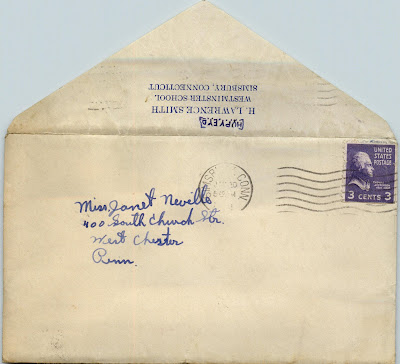 H. LAWRENCE SMITH
WESTMINSTER SCHOOL
SIMSBURY, CONNECTICUT
CONN.
UNITED
STATES
POSTAGE
3 CENTS 3
Miss Janet Neville
400 South Church Str.
West Chester
Penn.